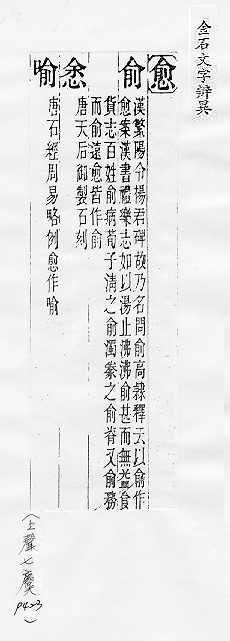 金石文字辨異
愈
俞 漢繁陽令楊君碑故乃名問俞高隸釋云以俞作
愈案漢書禮樂志如以湯止沸沸俞甚而無益食
貨志百姓俞病荀子清之俞濁豢之俞瘠又俞務
而俞遠愈皆作俞
悆 唐天后御製石刻
喻 唐石經周易略例愈作喻
(上聲七麌 P423)